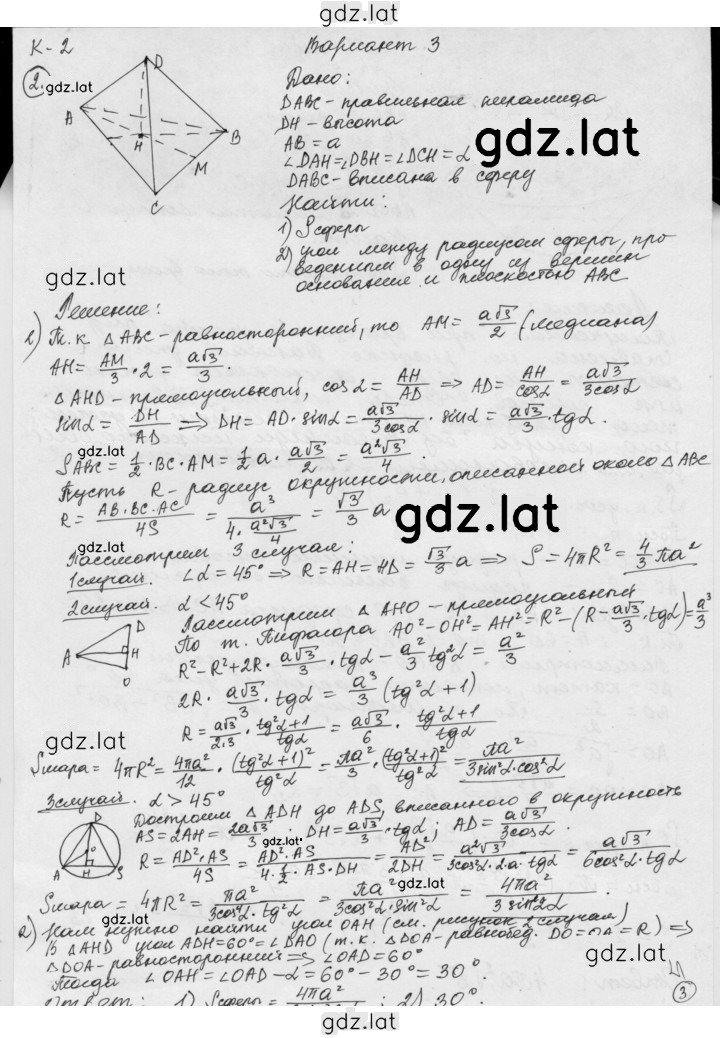 gdz.lat
К-2
Вариант 3
2. gdz.lat
Дано:
DABC - правильная пирамида
DH - высота
AB = a
∠DAH = ∠DBH = ∠DCH = α
DABC - вписана в сферу
Найти:
1) Sсферы
2) угол между радиусом сферы, про-
веденным в одну из вершин
основания и плоскостью ABC
D
A
H
B
M
C
gdz.lat
gdz.lat
Решение:
1) Т.к. △ABC - равносторонний, то AM = a√3/2 (медиана)
AH = AM/3 · 2 = a√3/3.
△AHD - прямоугольный, cos α = AH/AD ⇒ AD = AH/cosα = a√3/3cosα
sinα = DH/AD ⇒ DH = AD · sinα = a√3/3cosα · sinα = a√3/3 · tgα.
gdz.lat
SABC = 1/2 · BC · AM = 1/2 a · a√3/2 = a²√3/4.
Пусть R - радиус окружности, описанной около △ABC
R = AB·BC·AC/4S = a³/(4·a²√3/4) = √3/3 a
gdz.lat
gdz.lat
Рассмотрим 3 случая:
1 случай. ∠α = 45° ⇒ R = AH = HD = √3/3 a ⇒ S = 4πR² = 4/3 πa²
2 случай. α < 45°
Рассмотрим △AHO - прямоугольный
По т. Пифагора AO² - OH² = AH² = R² - (R - a√3/3 · tgα) = a³/3
D
A
H
O
R² - R² + 2R · a√3/3 · tgα - a²/3 tg²α = a²/3
2R · a√3/3 · tgα = a³/3 (tg²α + 1)
R = a√3/2·3 · tg²α+1/tgα = a√3/6 · tg²α+1/tgα
gdz.lat
gdz.lat
Sшара = 4πR² = 4πa²/12 · (tg²α+1)²/tg²α = πa²/3 · (tg²α+1)²/tg²α = πa²/3sin²α·cos²α
3 случай. α > 45°
Достроим △ADH до ADS, вписанного в окружность
AS = 2AH = 2a√3/3; DH = a√3/3 · tgα; AD = a√3/3cosα
D
O
A
H
S
R = AD²·AS/4S = AD²·AS/(4·1/2·AS·DH) = AD²/2DH = a²√3/3cos²α·2·a·tgα = a√3/6cos²α·tgα
gdz.lat
Sшара = 4πR² = πa²/3cos⁴α·tg²α = πa²/3cos²α·sin²α = 4πa²/3sin²2α.
gdz.lat
2) Нам нужно найти угол OAH (см. рисунок 2 случая)
В △AHD угол ADH = 60° = ∠DAO (т.к. △DOA - равнобед. DO = OA = R) ⇒
△DOA - равносторонний ⇒ ∠OAD = 60°
Тогда ∠OAH = ∠OAD - α = 60° - 30° = 30°.
Ответ: 1) Sсферы = 4πa² 2) 30°.
3
gdz.lat